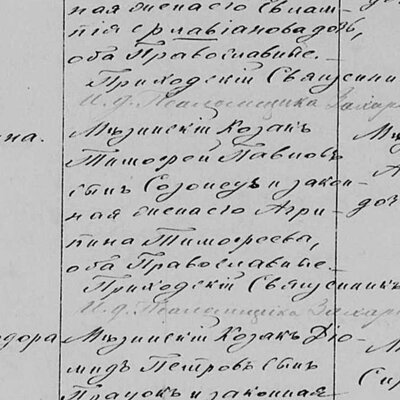 ная жена его Евлам-
пія Ермавіанова доч,
оба Православные.
Приходскій Священни
И. д. Псаломщика Захар
на. Мѣзинскій Козакъ
Тимофей Павловъ
сынъ Созонецъ и закон-
ная жена его Агри-
пина Тимофеева,
оба Православные.
Приходскій Священникъ
И. д. Псаломщика Захар
дора Мѣзинскій Козакъ Діо-
мидъ Петровъ сынъ
и законная